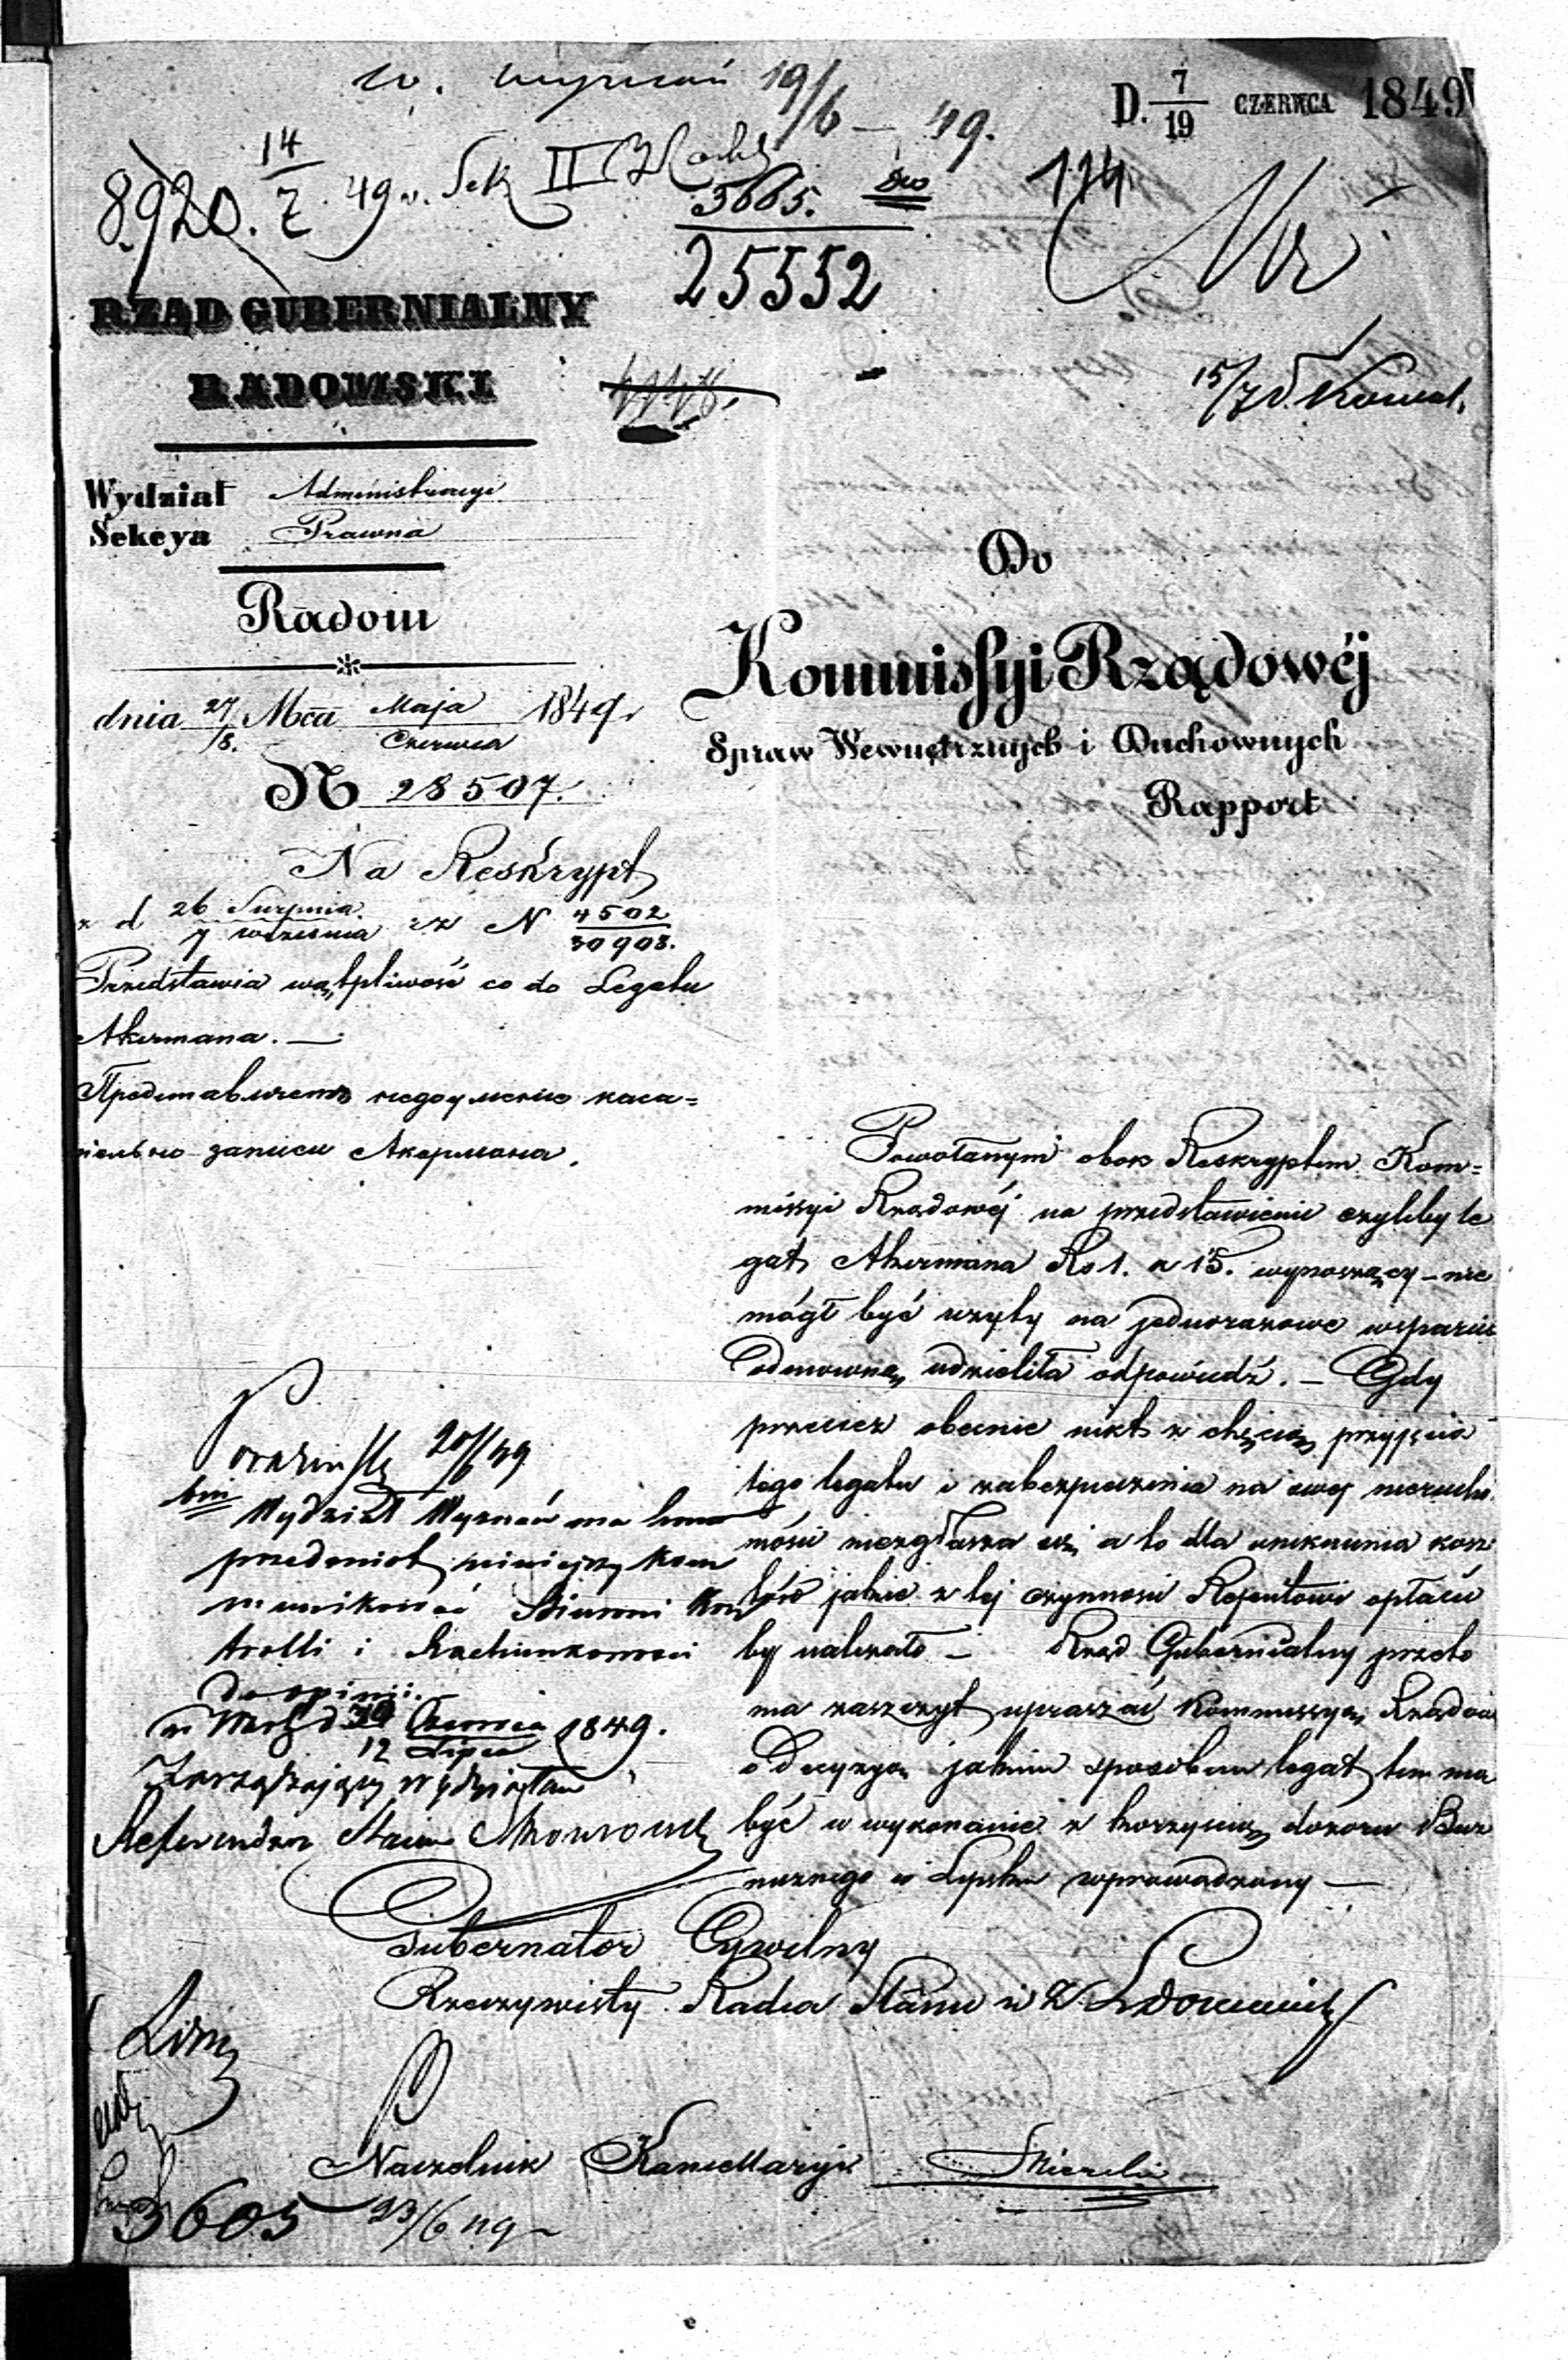 W. Wyznań 19/6 – 49.
D. 7/19 CZERWCA 1849
8920. 14/7 49 r. Sek II
3665.
114
25552
RZĄD GUBERNIALNY
RADOMSKI
15/7 d. Kowal.
Wydział Administracyi
Sekcya Prawna
Radom
dnia 27/8. Mca Maja/Czerwca 1849 r
N 28507.
Na Reskrypt
z d 26 Sierpnia/7 Września za N 4502/30903.
Przedstawia wątpliwość co do Legatu
Akermana. —
Представляетъ недоуменiе каса=
тельно записи Акермана.
Do
Kommissyi Rządowéj
Spraw Wewnętrznych i Duchownych
Rapport
Powołanym obok Reskryptem Kom=
missyi Rządowéj na przedstawienie czyliby le
gat Akermana Rs 1. k 15. wynoszący – nie
mógł być użyty na jednorazowe wsparcie
odmowną udzieliła odpowiedź. – Gdy
przecież obecnie nikt z chęcią przyjęcia
tego legatu i zabezpieczenia na swej nierucho
mości niezgłasza się a to dla uniknienia kosz
tów jakie z tej czynności Rejentowi opłacić
by należało – Rząd Gubernialny przeto
ma zaszczyt upraszać Kommissyą Rządową
o Decyzyą jakim sposobem legat ten ma
być w wykonanie z korzyścią dozoru Boż
niczego w Lipsku wprowadzony —
20/6 49
Wydział Wyznań ma honor
przedmiot niniejszy kom
munikować Biurowi Kon
trolli i Rachunkowości
do opinii.
w Warsz d 30 Czerwca/12 Lipca 1849.
Zarządzający Wydziałem
Referendarz Stanu
Gubernator Cywilny
Rzeczywisty Radca Stanu
Naczelnik Kancellaryi
3605 23/6 49 –